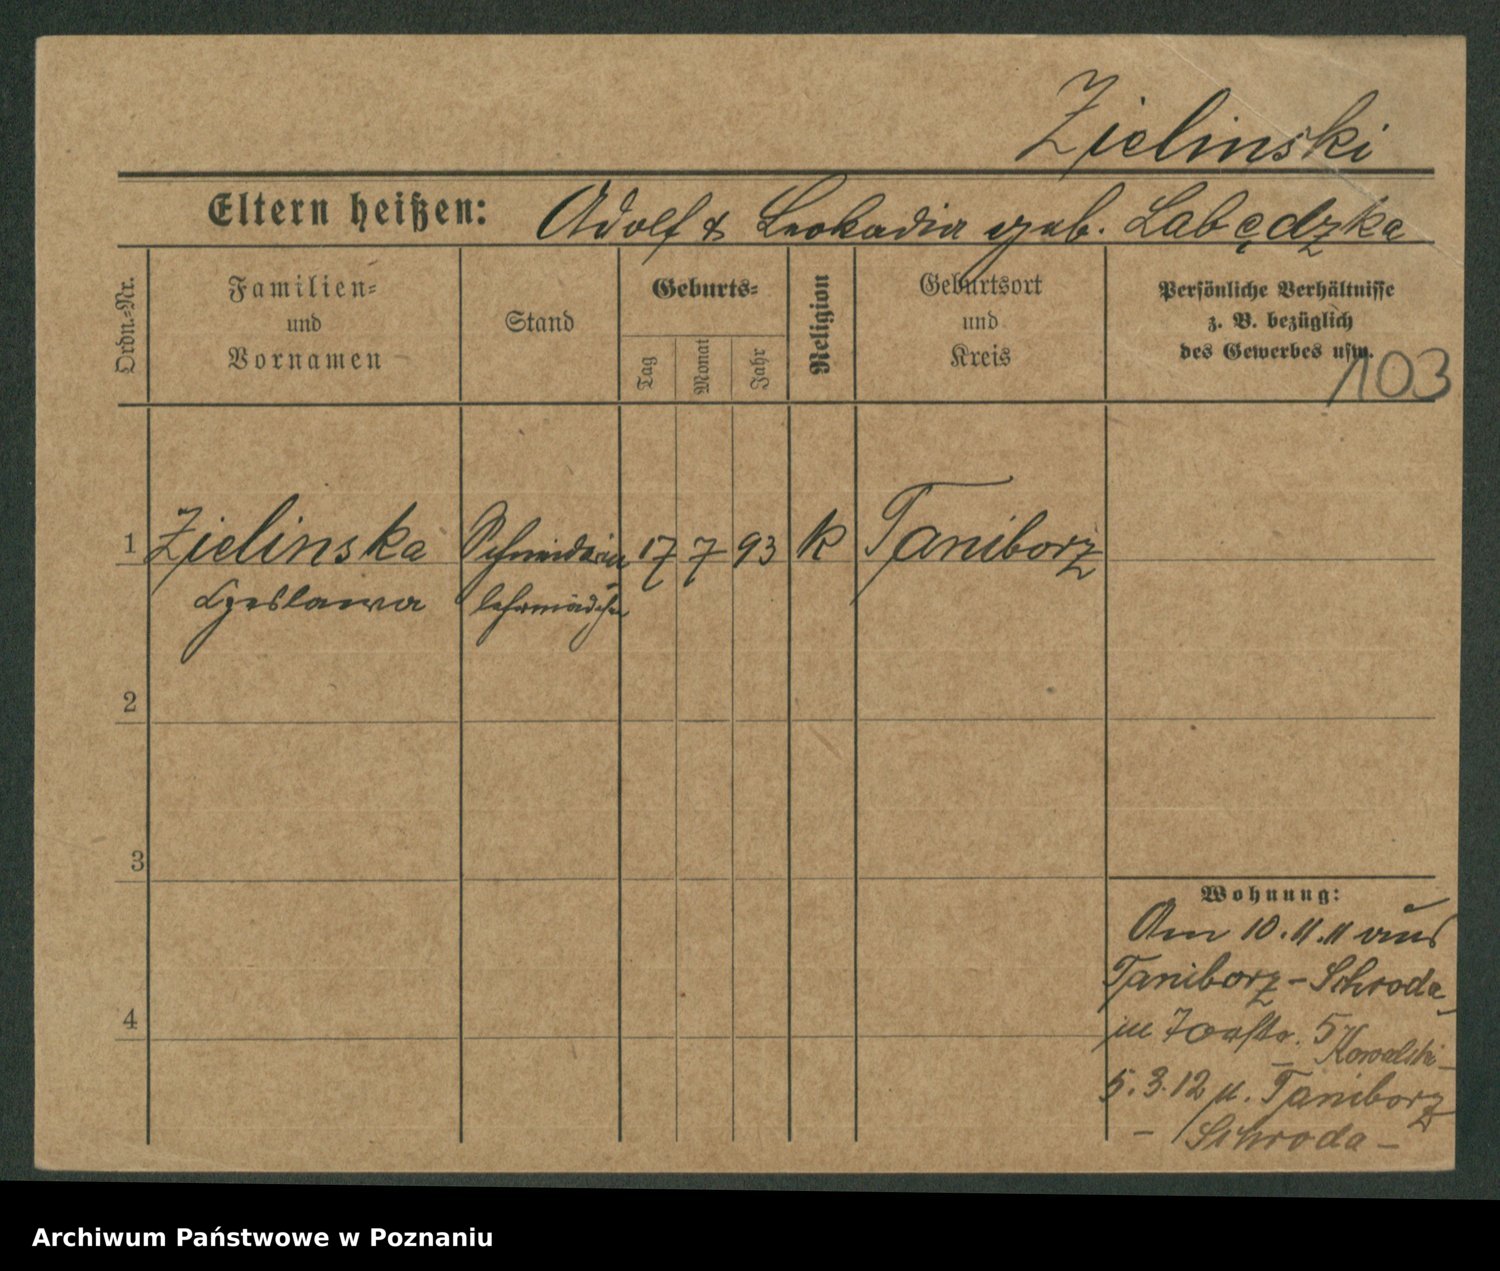 Zielinski
Eltern heißen: Adolf & Leokadia geb. Labędzka
Ordn.-Nr.
Familien-
und
Vornamen
Stand
Geburts-
Tag
Monat
Jahr
Religion
Geburtsort
und
Kreis
Persönliche Verhältnisse
z. B. bezüglich
des Gewerbes usw.
103
1 Zielinska Schneiderin 17 7 93 K Taniborz
Czeslawa lehrmädchen
2
3
4
Wohnung:
Am 10.11.11 aus
Taniborz - Schroda
in 5
Kowalski -
5.3.12 n. Taniborz
- Schroda -
Archiwum Państwowe w Poznaniu